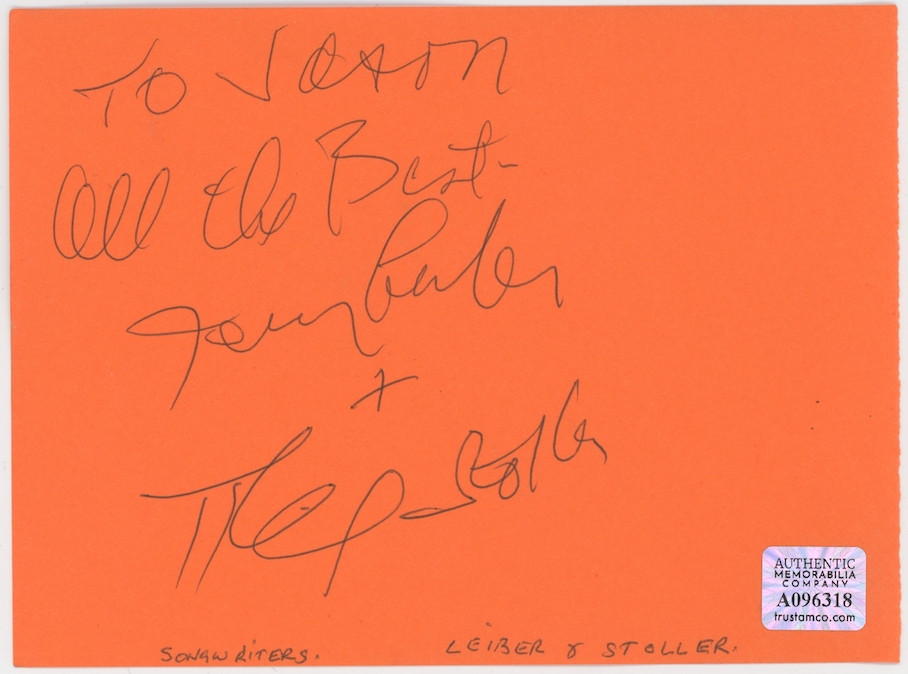 To Jaxon
All the Best-
Jerry Leiber
+
Mike Stoller
SONGWRITERS.
LEIBER & STOLLER.
AUTHENTIC
MEMORABILIA
COMPANY
A096318
trustamco.com